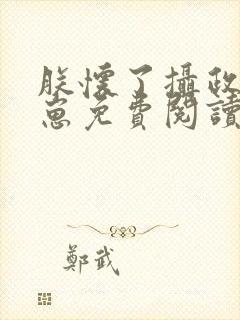 朕懷了攝政
崽免費閱讀
鄭武